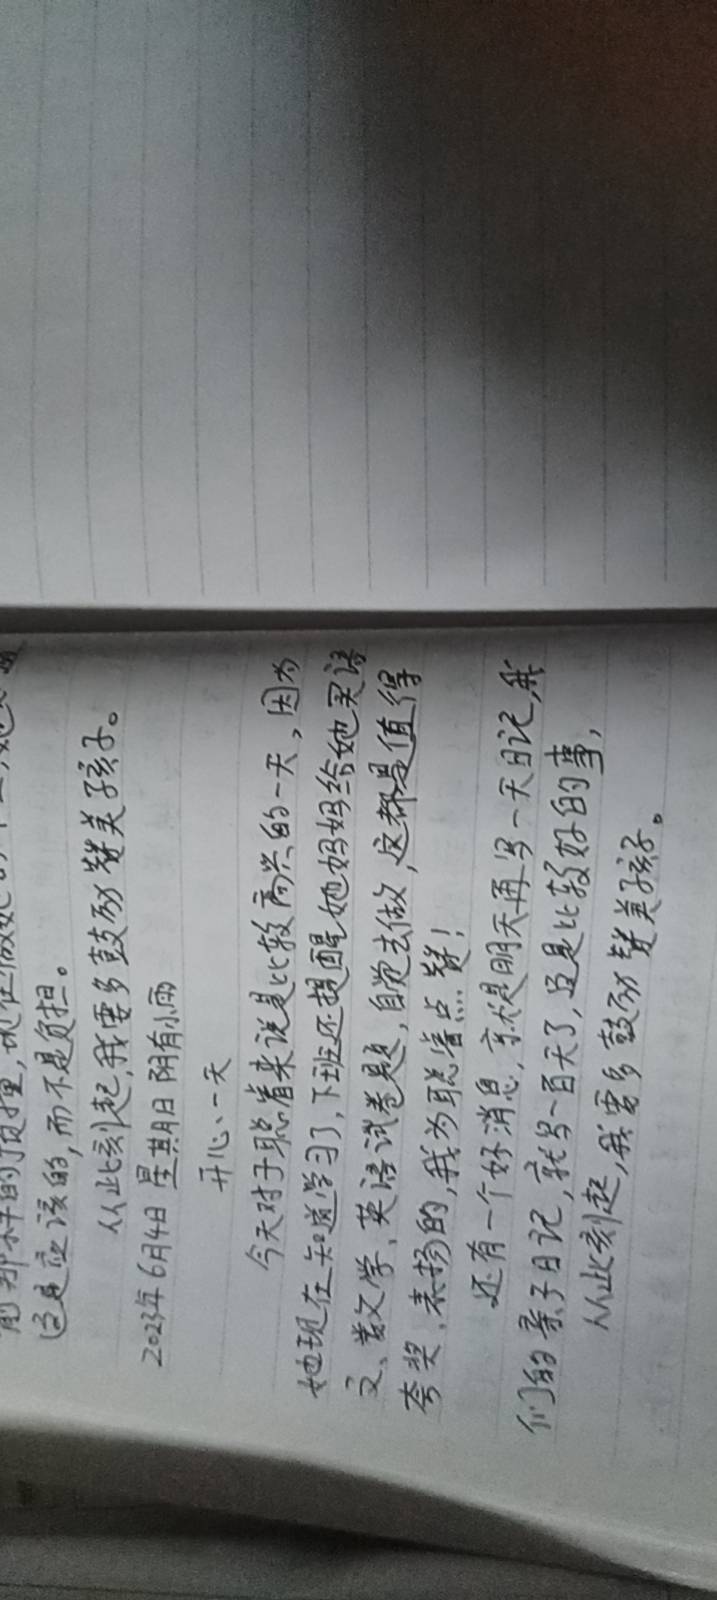 前那样的顶撞,现在做
这是应该的,而不是负担。
从此刻起,我要多鼓励赞美孩子。
2023年6月4日 星期日 阴有小雨
开心一天
今天对于聪睿来说是比较高兴的一天,因为
她现在知道学习了,下班还提醒她妈妈给她买语
文、数学、英语试卷题,自觉去做,这都是值得
夸奖、表扬的,我为聪睿点赞!
还有一个好消息,就是明天再写一天日记,我
们的亲子日记,就写一百天了,这是比较好的事,
从此刻起,我要多鼓励赞美孩子。